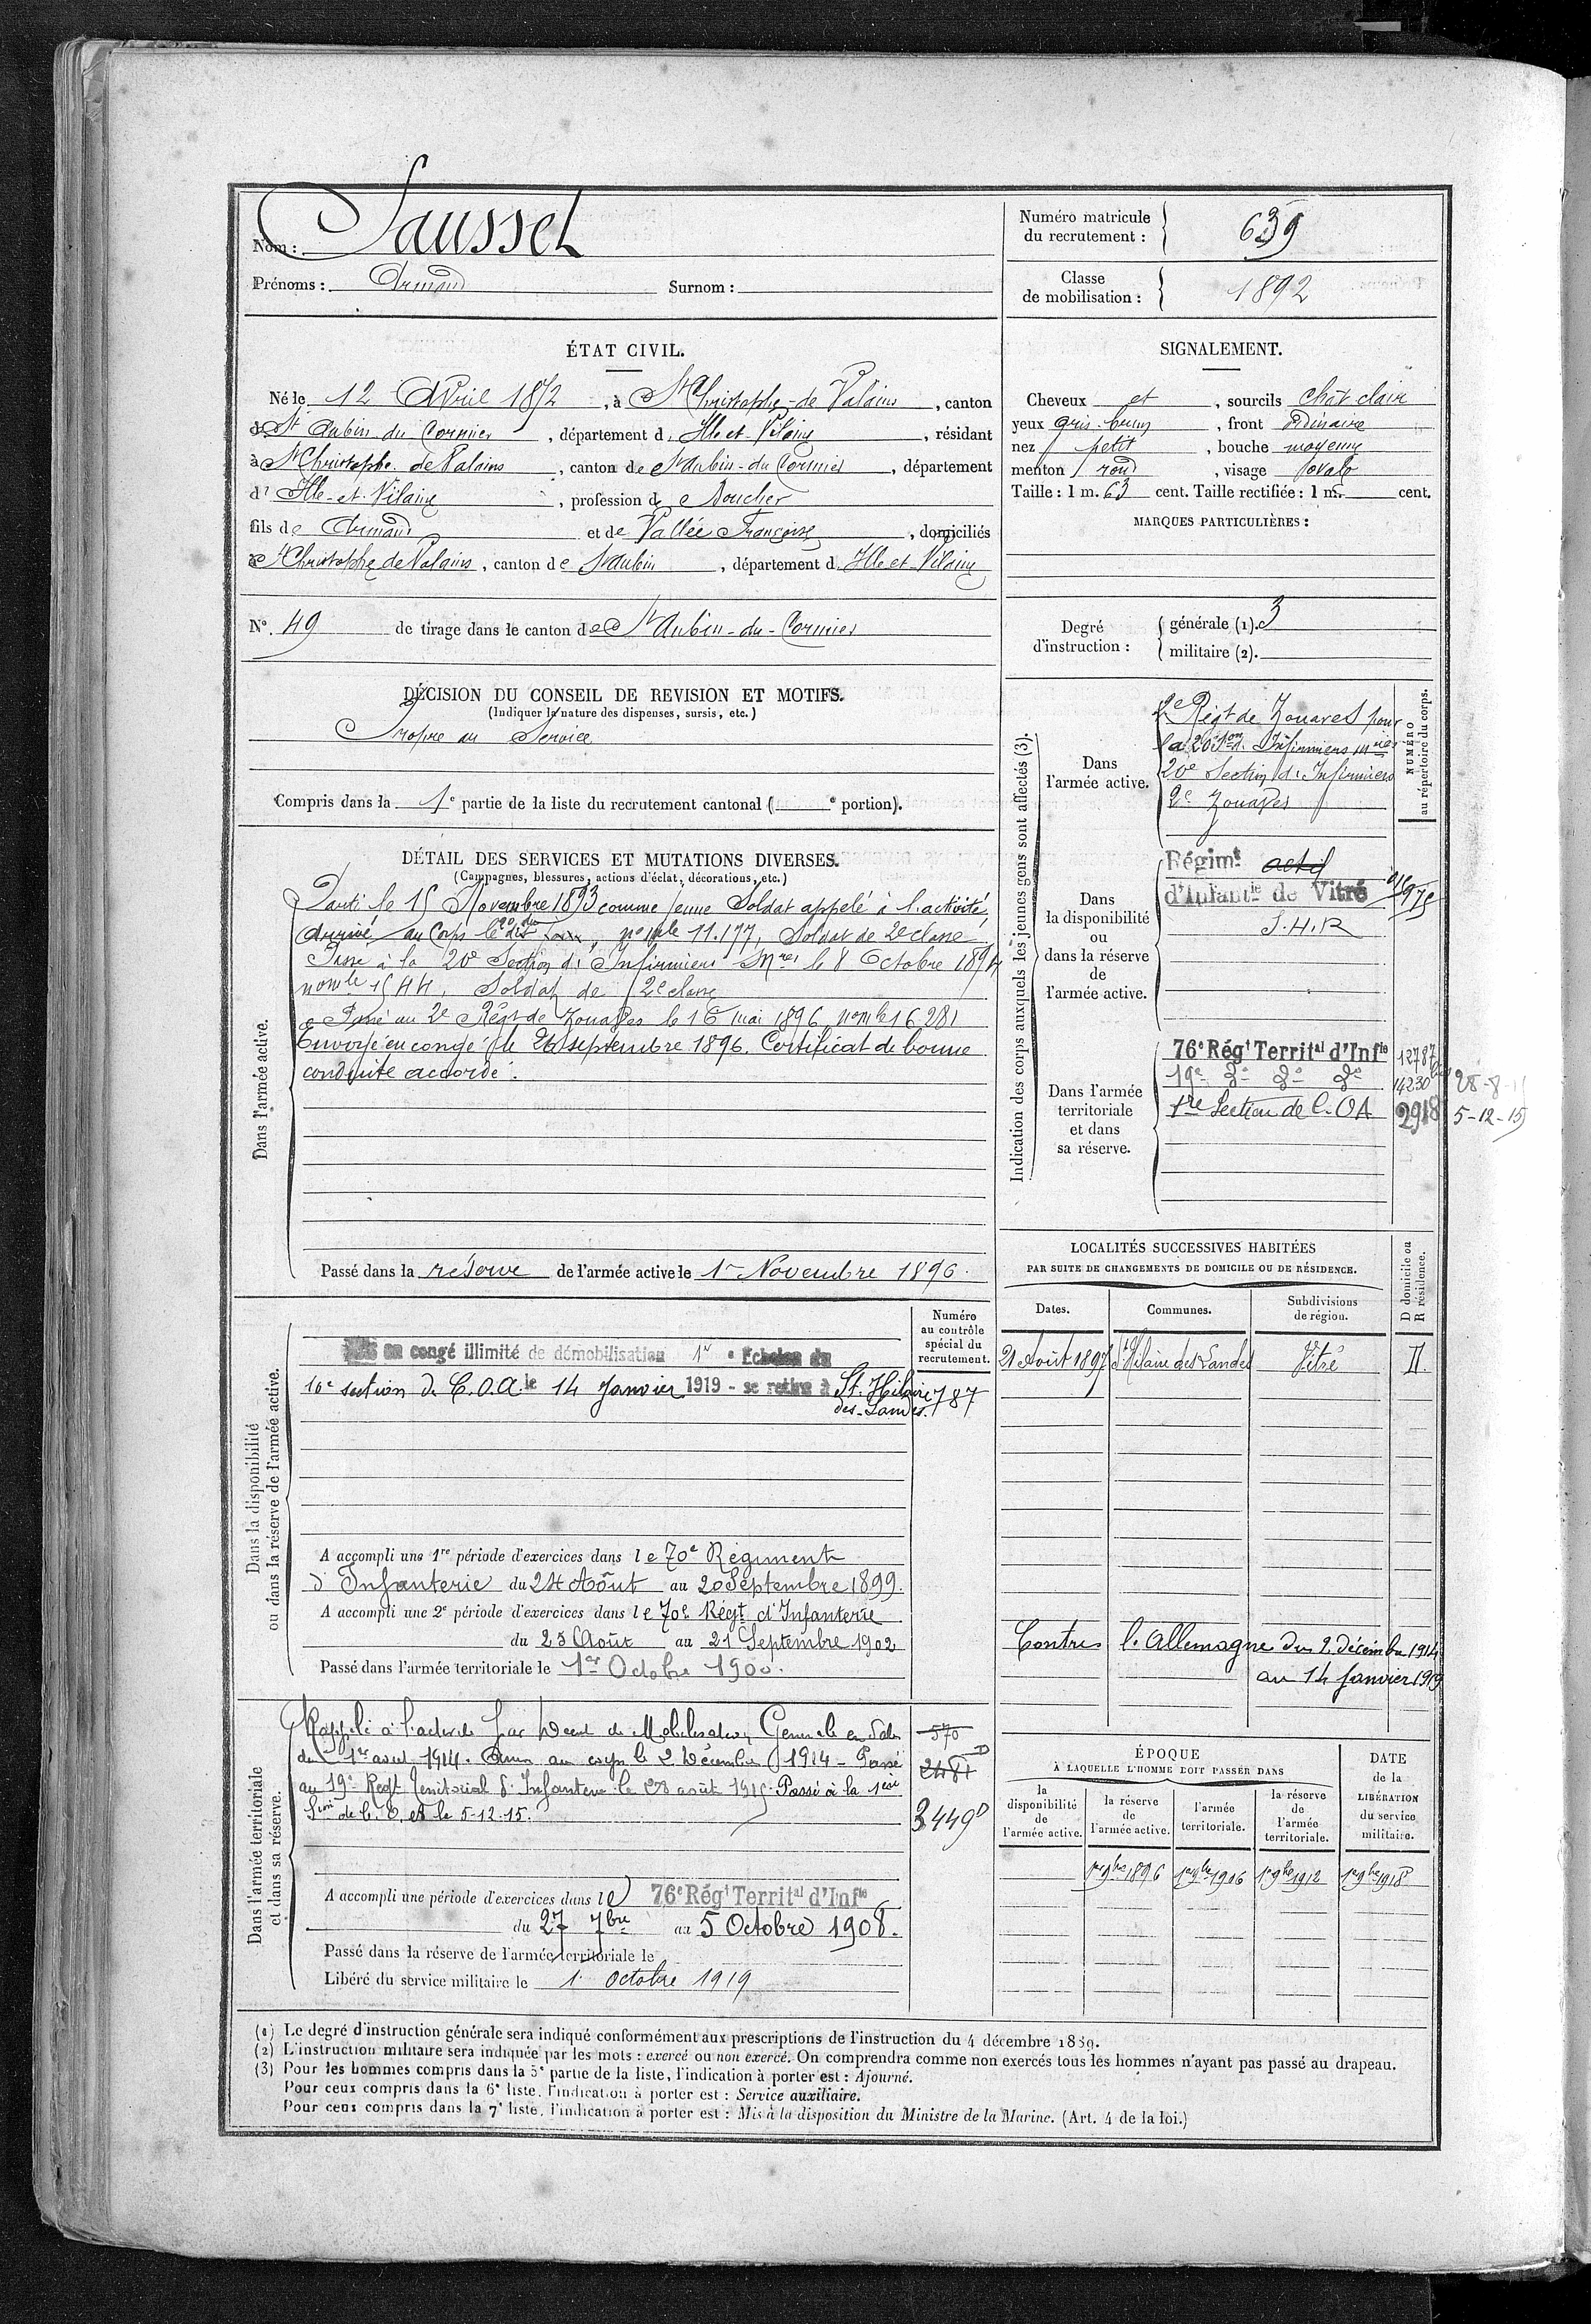 Nom : Sausset
Prénoms : Armand Surnom :
Numéro matricule du recrutement : 639
Classe de mobilisation : 1892
ÉTAT CIVIL.
Né le 12 Avril 1872, à St Christophe-de Valains, canton
de St Aubin-du Cormier, département d'Ille-et-Vilaine, résidant
à St Christophe de Valains, canton de St Aubin-du Cormier, département
d'Ille-et-Vilaine, profession de
fils de Armand et de Vallée Françoise, domiciliés
à St Christophe de Valains, canton de St Aubin, département d'Ille et Vilaine
N° 49 de tirage dans le canton de St Aubin-du-Cormier
SIGNALEMENT.
Cheveux et, sourcils chât clair
yeux gris-brun, front Ordinaire
nez petit, bouche moyenne
menton rond, visage ovale
Taille : 1 m. 63 cent. Taille rectifiée : 1 m. cent.
MARQUES PARTICULIÈRES :
Degré d'instruction : générale (1). 3
militaire (2).
DÉCISION DU CONSEIL DE REVISION ET MOTIFS.
(Indiquer la nature des dispenses, sursis, etc.)
Propre au Service
Compris dans la 1e partie de la liste du recrutement cantonal ( e portion).
DÉTAIL DES SERVICES ET MUTATIONS DIVERSES.
(Campagnes, blessures, actions d'éclat, décorations, etc.)
Dans l'armée active.
Parti le 15 Novembre 1893 comme jeune Soldat appelé à l'activité,
Arrivé au Corps le 20 dudit, no mle 11.177, Soldat de 2e classe.
Passé à la 20e Section d'Infirmiers Mres le 8 Octobre 1894
no mle 1544. Soldat de 2e classe
Passé au 2e Régt de Zouaves le 16 mai 1896 no mle 16281
Envoyé en congé le 26 septembre 1896. Certificat de bonne
conduite accordé.
Passé dans la réserve de l'armée active le 1er Novembre 1896.
Indication des corps auxquels les jeunes gens sont affectés (3).
NUMÉRO au répertoire du corps.
Dans l'armée active.
2e Régt de Zouaves pour
la 20e Son d'Infirmiers mres
20e Section d'Infirmiers
2e Zouaves
Dans la disponibilité ou dans la réserve de l'armée active.
Régimt actif
d'Infantie de Vitré
S.H.R
Dans l'armée territoriale et dans sa réserve.
76e Régt Territal d'Infie 12787
19e do do do 14230 28-8-15
1re Section de C.OA 2918 5-12-15
LOCALITÉS SUCCESSIVES HABITÉES
PAR SUITE DE CHANGEMENTS DE DOMICILE OU DE RÉSIDENCE.
Dates. Communes. Subdivisions de région. D domicile ou R résidence.
21 Août 1897 St Hilaire des Landes Vitré D.
Contre l'Allemagne du 2 décembre 1914
au 14 Janvier 1919
Dans la disponibilité ou dans la réserve de l'armée active.
Numéro au contrôle spécial du recrutement.
en congé illimité de démobilisation 1er Echelon du
16e section de C.O.A le 14 Janvier 1919 - se retire à St. Hilaire
des-Landes. 787
A accompli une 1re période d'exercices dans le 70e Régiment
d'Infanterie du 24 Août au 20 Septembre 1899.
A accompli une 2e période d'exercices dans le 70e Régt d'Infanterie
du 25 Août au 21 Septembre 1902
Passé dans l'armée territoriale le 1er Octobre 1900.
Dans l'armée territoriale et dans sa réserve.
Rappelé à l'activité par Décret de Mobilisation Générale en date
du 1er aout 1914. Arrivé au corps le 2 Décembre 1914 - Passé
au 19e Regt Territorial d'Infanterie le 28 août 1915. Passé à la 1ère
Son de C.O.A le 5-12-15.
570
2481
3449
A accompli une période d'exercices dans le 76e Régt Territal d'Infie
du 27 7bre au 5 Octobre 1908.
Passé dans la réserve de l'armée territoriale le
Libéré du service militaire le 1er octobre 1919
ÉPOQUE
À LAQUELLE L'HOMME DOIT PASSER DANS
la disponibilité de l'armée active. la réserve de l'armée active. l'armée territoriale. la réserve de l'armée territoriale.
DATE de la LIBÉRATION du service militaire.
1er 9bre 1896 1er 9bre 1906 1er 9bre 1912 1er 9bre 1918
(1) Le degré d'instruction générale sera indiqué conformément aux prescriptions de l'instruction du 4 décembre 1889.
(2) L'instruction militaire sera indiquée par les mots : exercé ou non exercé. On comprendra comme non exercés tous les hommes n'ayant pas passé au drapeau.
(3) Pour les hommes compris dans la 5e partie de la liste, l'indication à porter est : Ajourné.
Pour ceux compris dans la 6e liste, l'indication à porter est : Service auxiliaire.
Pour ceux compris dans la 7e liste, l'indication à porter est : Mis à la disposition du Ministre de la Marine. (Art. 4 de la loi.)